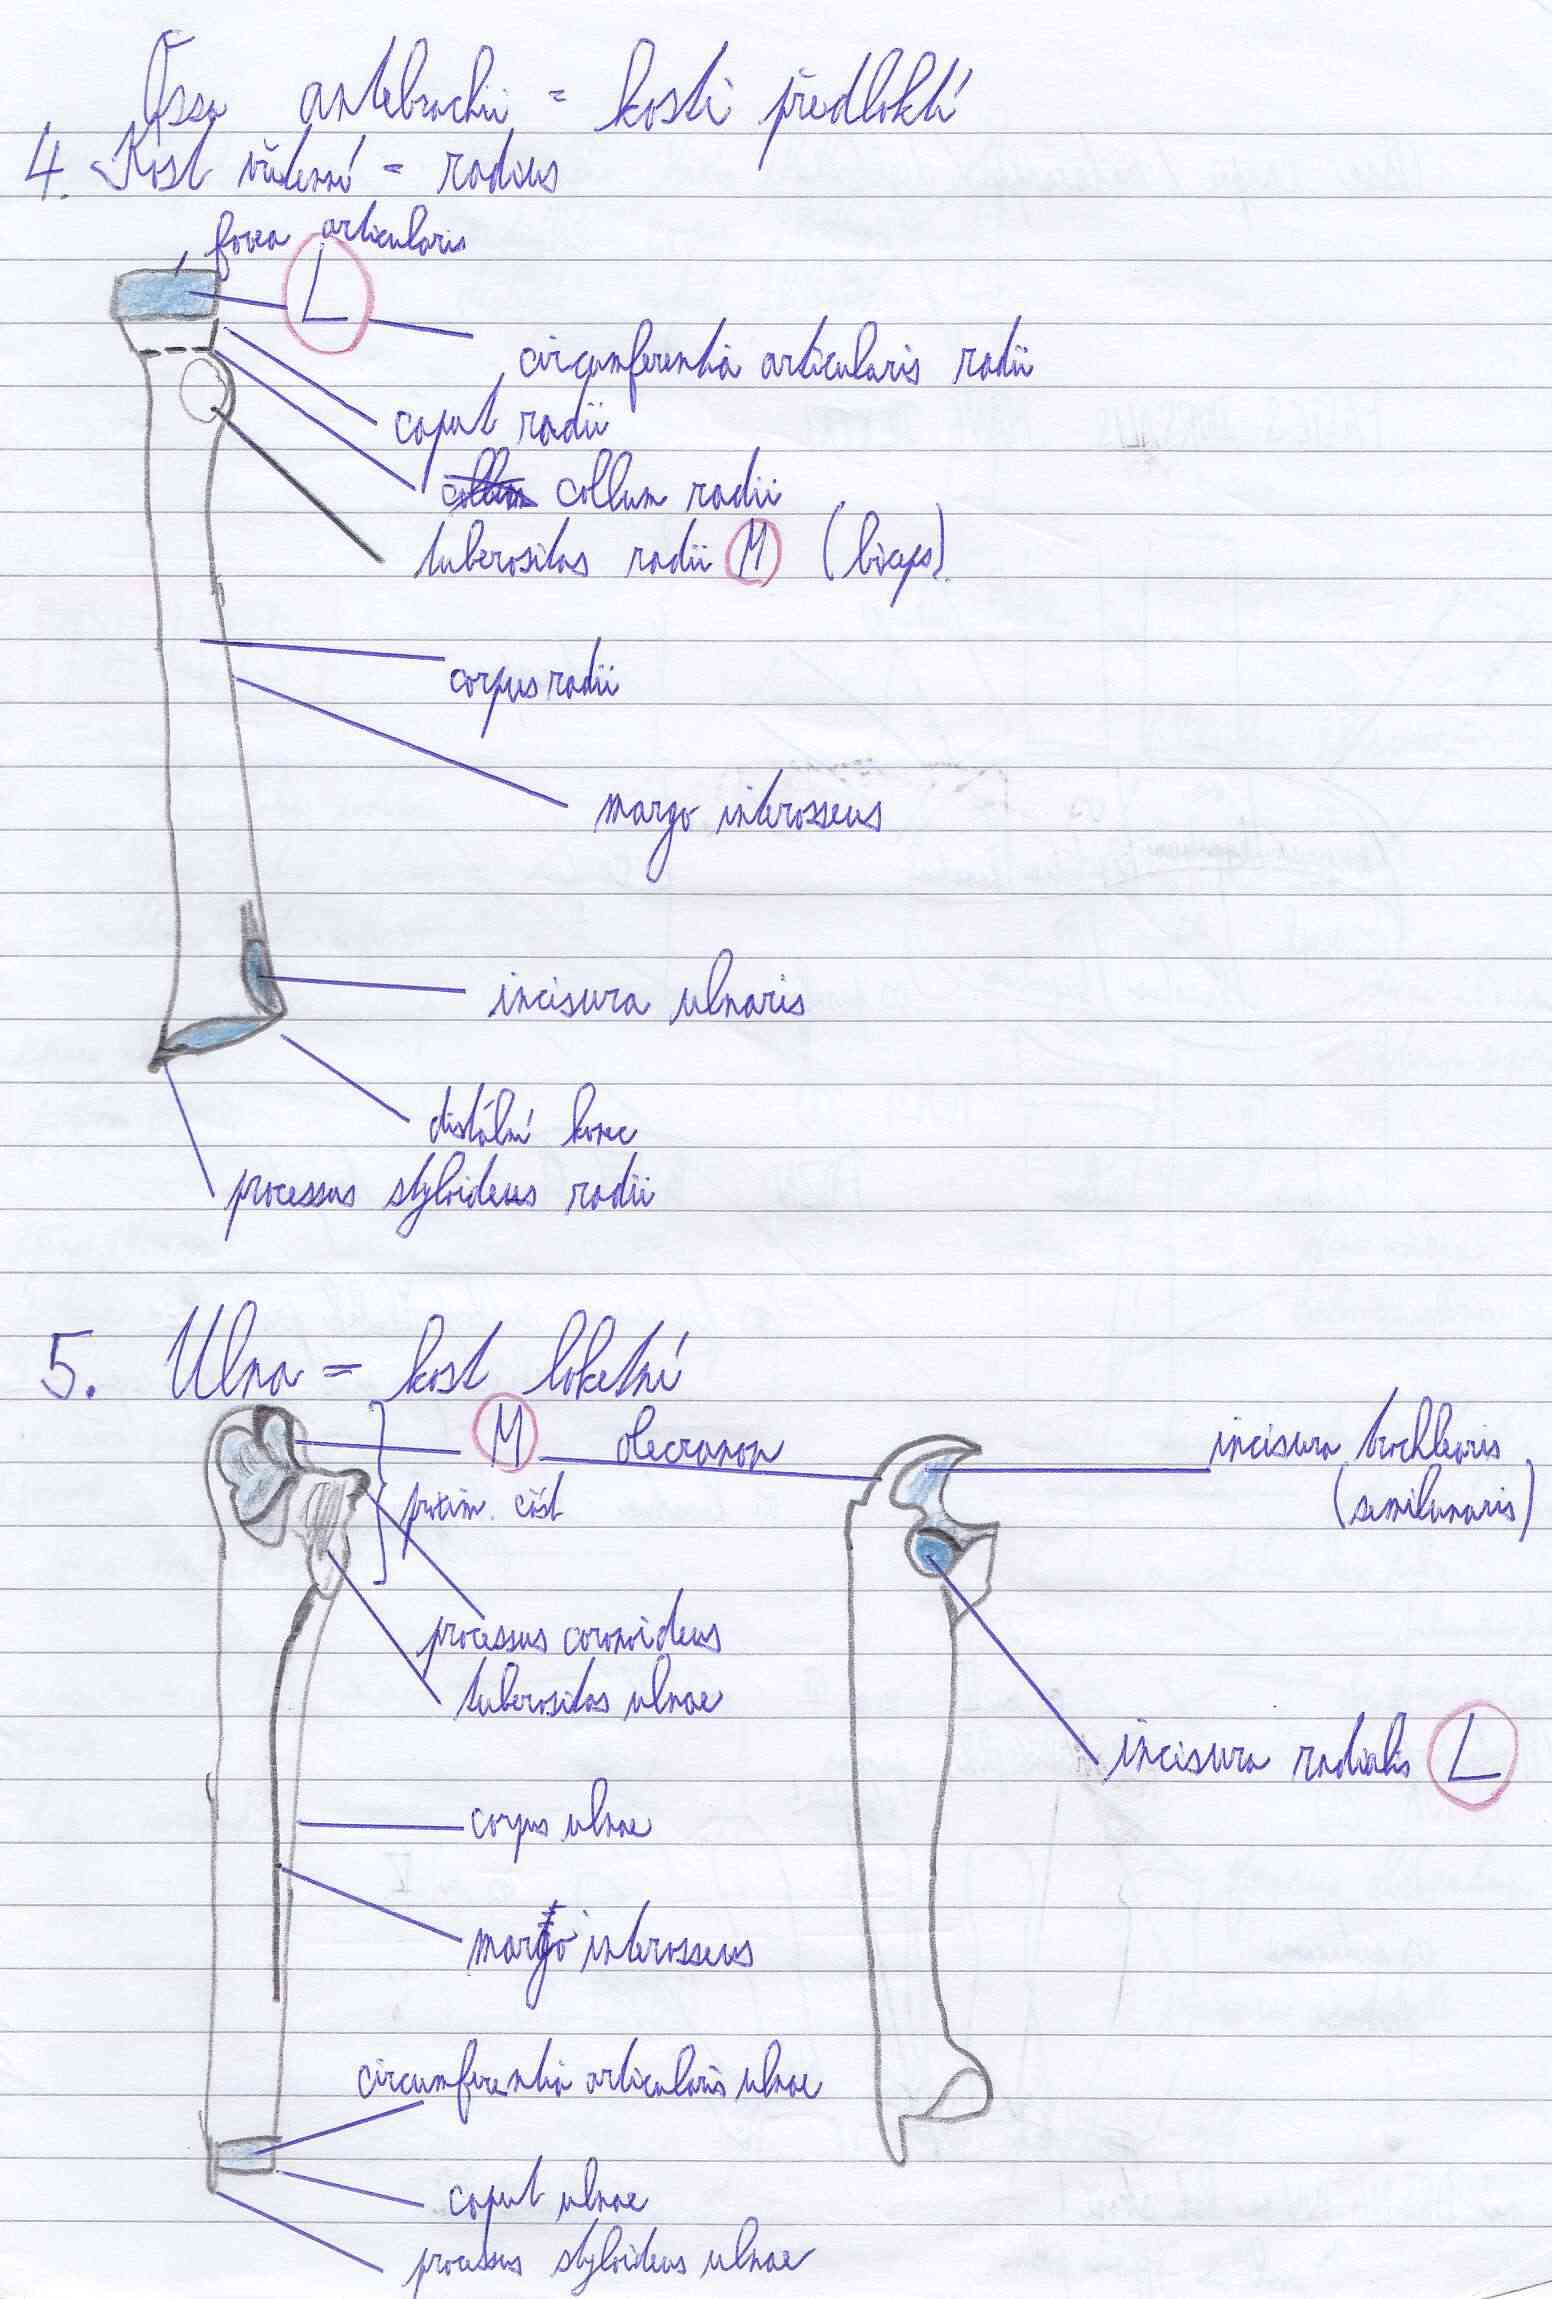 Ossa antebrachii = kosti předloktí
4. Kost vřetenní = radius
fovea articularis
L
circumferentia articularis radii
caput radii
collum collum radii
tuberositas radii M (biceps)
corpus radii
margo interosseus
incisura ulnaris
distální konec
processus styloideus radii
5. Ulna = kost loketní
M olecranon
incisura trochlearis
(semilunaris)
proxim. část
processus coronoideus
tuberositas ulnae
incisura radialis L
corpus ulnae
margo interosseus
circumferentia articularis ulnae
caput ulnae
processus styloideus ulnae